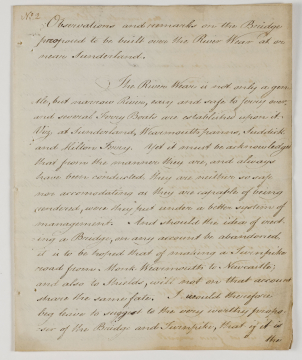 No 2
Observations and remarks on the Bridge
proposed to be built over the River Wear at or
near Sunderland.
The River Wear is not only a gen
tle, but narrow River, easy and safe to ferry over,
and several Ferry Boats are established upon it.
Viz. at Sunderland, Wearmouth panns, Southick
and Hilton Ferry. Yet it must be acknowledged
that from the manner they are, and always
have been conducted they are neither so safe
nor accomodating as they are capable of being
rendered, were they put under a better system of
management. And should the idea of erect
ing a Bridge, on any account be abandoned,
it is to be hoped that of making a Turnpike
road from Monk Wearmouth to Newcastle,
and also to Shields, will not on that account
share the same fate. I would therefore
beg leave to suggest to the very worthy propo
ser of the Bridge and Turnpike, that if it is
the